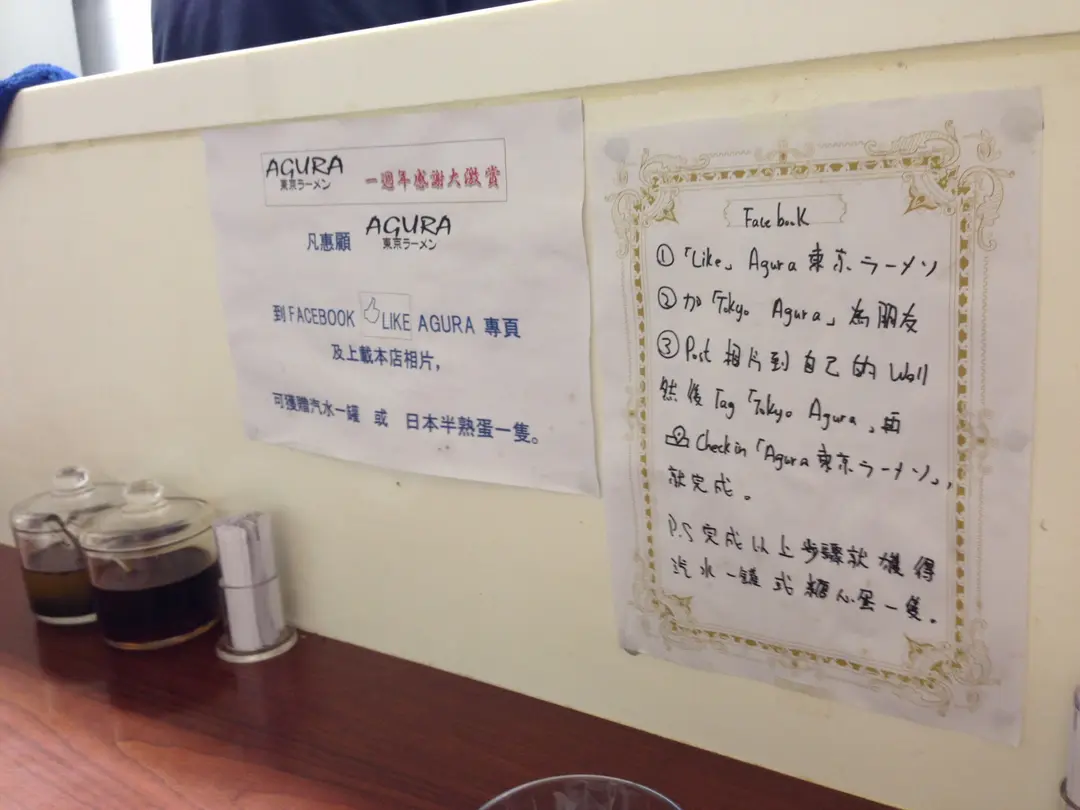 AGURA
東京ラーメン
一週年感謝大激賞
凡惠顧
AGURA
東京ラーメン
到FACEBOOK LIKE AGURA 專頁
及上載本店相片,
可獲贈汽水一罐 或 日本半熟蛋一隻。
Facebook
① 「Like」 Agura 東京ラーメン
② 加「Tokyo Agura」為朋友
③ Post 相片到自己的 Wall
然後 Tag 「Tokyo Agura」再
Check in 「Agura 東京ラーメン」,
就完成。
P.S 完成以上步驟就獲得
汽水一罐或糖心蛋一隻。